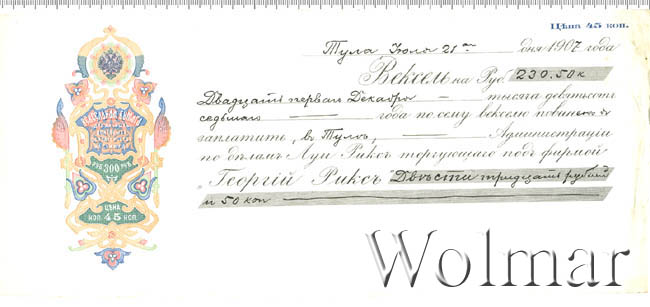 Цѣна 45 коп.
Тула Июля 21го дня 1907 года
Вексель на Руб 230.50к
Двадцать перваго Декабря — тысяча девятьсотъ
седьмаго — года по сему векселю повиненъ я
заплатить, въ Тулѣ, — Администраціи
по дѣламъ Луи Риксъ торгующаго подъ фирмой
„Георгій Риксъ" Двѣсти тридцать рублей
и 50 коп —
РУБ 300 РУБ
ЦѢНА
КОП. 45 КОП.
Wolmar